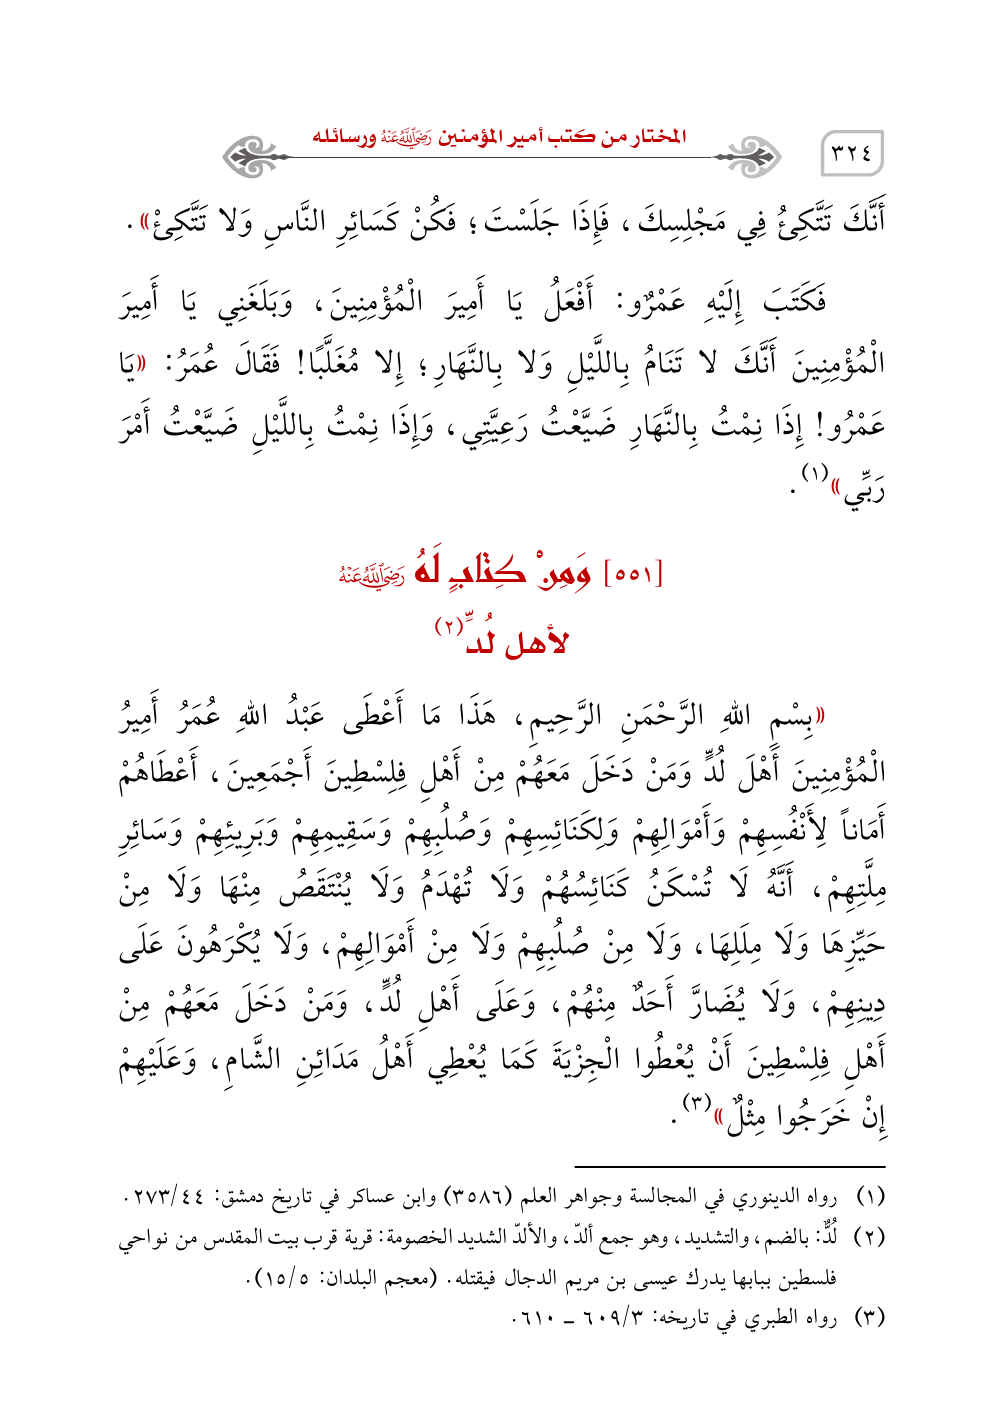 المختار من كتب أمير المؤمنين رَضِيَ اللَّهُ عَنْهُ ورسائله
٣٢٤
أَنَّكَ تَتَّكِئُ فِي مَجْلِسِكَ، فَإِذَا جَلَسْتَ؛ فَكُنْ كَسَائِرِ النَّاسِ وَلا تَتَّكِئْ».
فَكَتَبَ إِلَيْهِ عَمْرٌو: أَفْعَلُ يَا أَمِيرَ الْمُؤْمِنِينَ، وَبَلَغَنِي يَا أَمِيرَ
الْمُؤْمِنِينَ أَنَّكَ لا تَنَامُ بِاللَّيْلِ وَلا بِالنَّهَارِ؛ إِلا مُغَلَّبًا! فَقَالَ عُمَرُ: «يَا
عَمْرُو! إِذَا نِمْتُ بِالنَّهَارِ ضَيَّعْتُ رَعِيَّتِي، وَإِذَا نِمْتُ بِاللَّيْلِ ضَيَّعْتُ أَمْرَ
رَبِّي»(١).
[٥٥١] وَمِنْ كِتَابٍ لَهُ رَضِيَ اللَّهُ عَنْهُ
لأهل لُدٍّ(٢)
«بِسْمِ اللهِ الرَّحْمَنِ الرَّحِيمِ، هَذَا مَا أَعْطَى عَبْدُ اللهِ عُمَرُ أَمِيرُ
الْمُؤْمِنِينَ أَهْلَ لُدٍّ وَمَنْ دَخَلَ مَعَهُمْ مِنْ أَهْلِ فِلِسْطِينَ أَجْمَعِينَ، أَعْطَاهُمْ
أَمَاناً لِأَنْفُسِهِمْ وَأَمْوَالِهِمْ وَلِكَنَائِسِهِمْ وَصُلُبِهِمْ وَسَقِيمِهِمْ وَبَرِيئِهِمْ وَسَائِرِ
مِلَّتِهِمْ، أَنَّهُ لَا تُسْكَنُ كَنَائِسُهُمْ وَلَا تُهْدَمُ وَلَا يُنْتَقَصُ مِنْهَا وَلَا مِنْ
حَيِّزِهَا وَلَا مِلَلِهَا، وَلَا مِنْ صُلُبِهِمْ وَلَا مِنْ أَمْوَالِهِمْ، وَلَا يُكْرَهُونَ عَلَى
دِينِهِمْ، وَلَا يُضَارَّ أَحَدٌ مِنْهُمْ، وَعَلَى أَهْلِ لُدٍّ، وَمَنْ دَخَلَ مَعَهُمْ مِنْ
أَهْلِ فِلِسْطِينَ أَنْ يُعْطُوا الْجِزْيَةَ كَمَا يُعْطِي أَهْلُ مَدَائِنِ الشَّامِ، وَعَلَيْهِمْ
إِنْ خَرَجُوا مِثْلٌ»(٣).
(١) رواه الدينوري في المجالسة وجواهر العلم (٣٥٨٦) وابن عساكر في تاريخ دمشق: ٢٧٣/٤٤.
(٢) لُدٌّ: بالضم، والتشديد، وهو جمع ألدّ، والألدّ الشديد الخصومة: قرية قرب بيت المقدس من نواحي
فلسطين ببابها يدرك عيسى بن مريم الدجال فيقتله. (معجم البلدان: ١٥/٥).
(٣) رواه الطبري في تاريخه: ٦٠٩/٣ ـ ٦١٠.